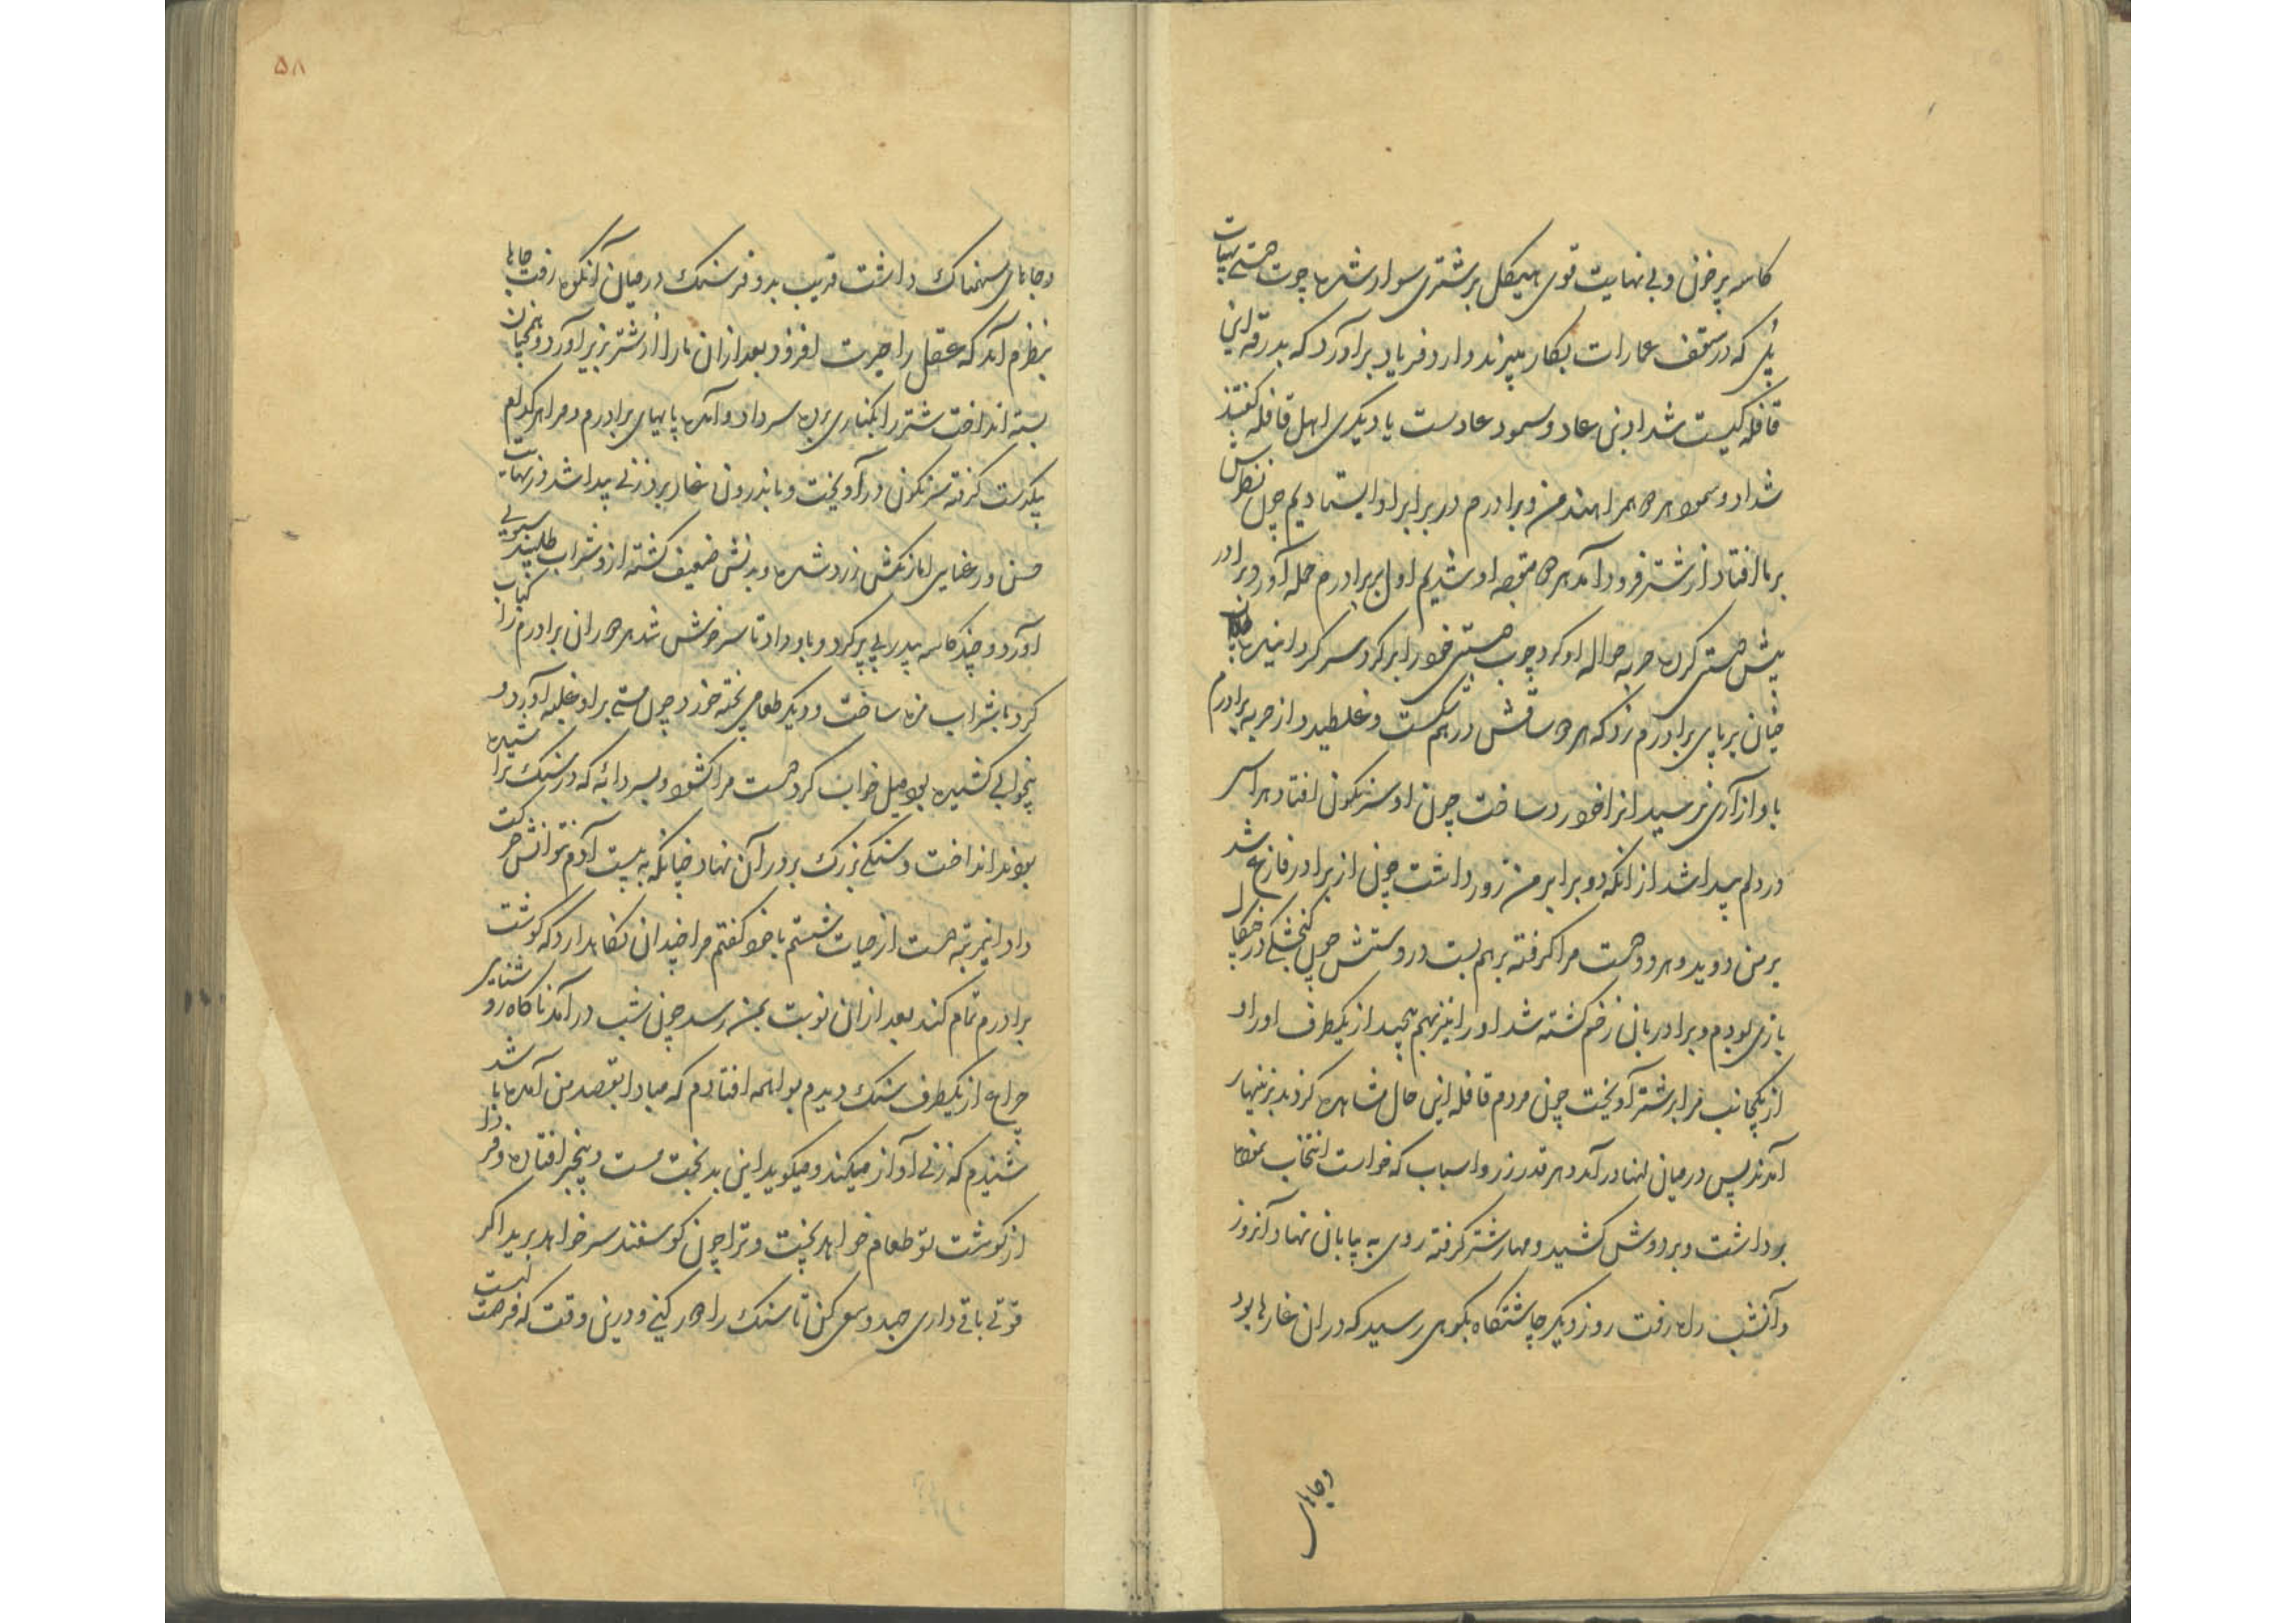 کاسه پرخون و بی نهایت قوی هیکل بر شتری سوار شده چوب دستی بهیات
پلی که در سقف عمارات بکار میبرند دارد فریاد برآورد که بدرقه این
قافله کیست شداد بن عاد و سمود عادست یا دیکری اهل قافله کفتند
شداد و سمود هر دو همراهند من و برادرم در برابر او ایستادیم چون نظرش
بر ما افتاد از شتر فرود آمد هر دو متوجه او شدیم اول بر برادرم حمله آورد برادر
پیش دستی کرده حربه حواله او کرد چوب دستی خود را بر کرد سر کردانیده
چنان بر پای برادرم زد که هر دو ساقش درهم شکست و غلطید و از حربه برادرم
باو ازاری نرسید انرا خورد ساخت چون او سرنکون افتاد هراس
در دلم پیدا شد از انکه دو برابر من زور داشت چون از برادر فارغ شد
بر من دوید و هر دو دست مرا کرفته برهم بست در دستش چون کنجشکی در چنکال
بازی بودم و برادر بان زخم کشته شد او را نیز بهم پیچید از یکطرف او را و
از یکجانب مرا بر شتر آویخت چون مردم قافله این حال مشاهده کردند بزینهار
آمدند پس در میان انها درآمد و هر قدر زر و اسباب که خواست انتخاب نموده
برداشت و بر دوش کشید و مهار شتر کرفته روی به بیابان نهاد آنروز
و آنشب راه رفت روز دیکر چاشتکاه بکوهی رسید که در ان غارها بود
وجاهای
۵۸
و جاهای سهمناک داشت قریب بدو فرسنک در میان آنکوه رفت جاها
بنظرم آمد که عقل را حیرت افزود بعد از ان ما را از شتر بزیر آورد و همچنان
بسته انداخت شتر را بکناری برده سر داد و آمده پایهای برادرم و مرا هر کدام
بیکدست کرفته سرنکون درآویخت و باندرون غار برد زنی پیدا شد در نهایت
حسن و رعنایی اما رنکش زرد شده و بدنش ضعیف کشته ازو شراب طلبید سبویی
آورد و چند کاسه پی در پی پر کرد و باو داد تا سرخوش شد هر دو ران برادرم را کباب
کرد با شراب مزه ساخت و دیکر طعامی پخته خورد چون مستی بر او غلبه آورد و
بیخوابی کشیده بود میل خواب کرد دست مرا کشود و بسردابه که در سنک تراشیده
بودند انداخت و سنکی بزرک بر در آن نهاد چنانکه به بیست آدم نتوانش حرکت
داد انمرتبه دست از حیات شستم با خود کفتم مرا چندان نکاهدارد که کوشت
برادرم تمام کند بعد از ان نوبت بمن رسد چون شب درآمد ناکاه روشنایی
چراغ از یکطرف سنک دیدم بواهمه افتادم که مبادا بقصد من آمده باشد
شنیدم که زنی آواز میکند و میکوید این بدبخت مست و بیخبر افتاده و فردا
از کوشت تو طعام خواهد پخت و ترا چون کوسفند سر خواهد برید اکر
قوتی باقی داری جهد و سعی کن تا سنک را دور کنی و درین وقت که فرصت نیست